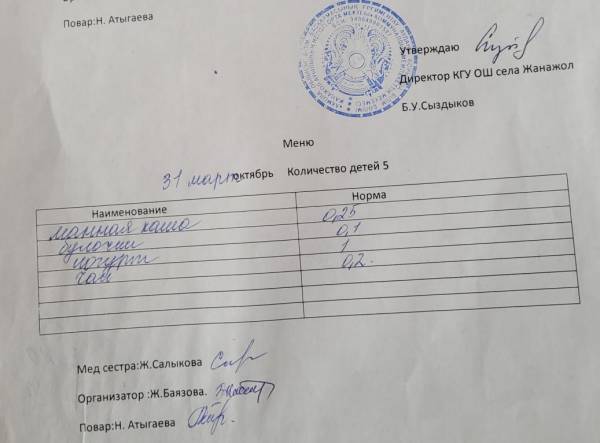 Повар:Н. Атыгаева
Утверждаю
Директор КГУ ОШ села Жанажол
Б.У.Сыздыков
Меню
31 март октябрь Количество детей 5
Наименование Норма
манная каша 0,25
булочки 0,1
йогурт 1
чай 0,2.
Мед сестра:Ж.Салыкова
Организатор :Ж.Баязова.
Повар:Н. Атыгаева